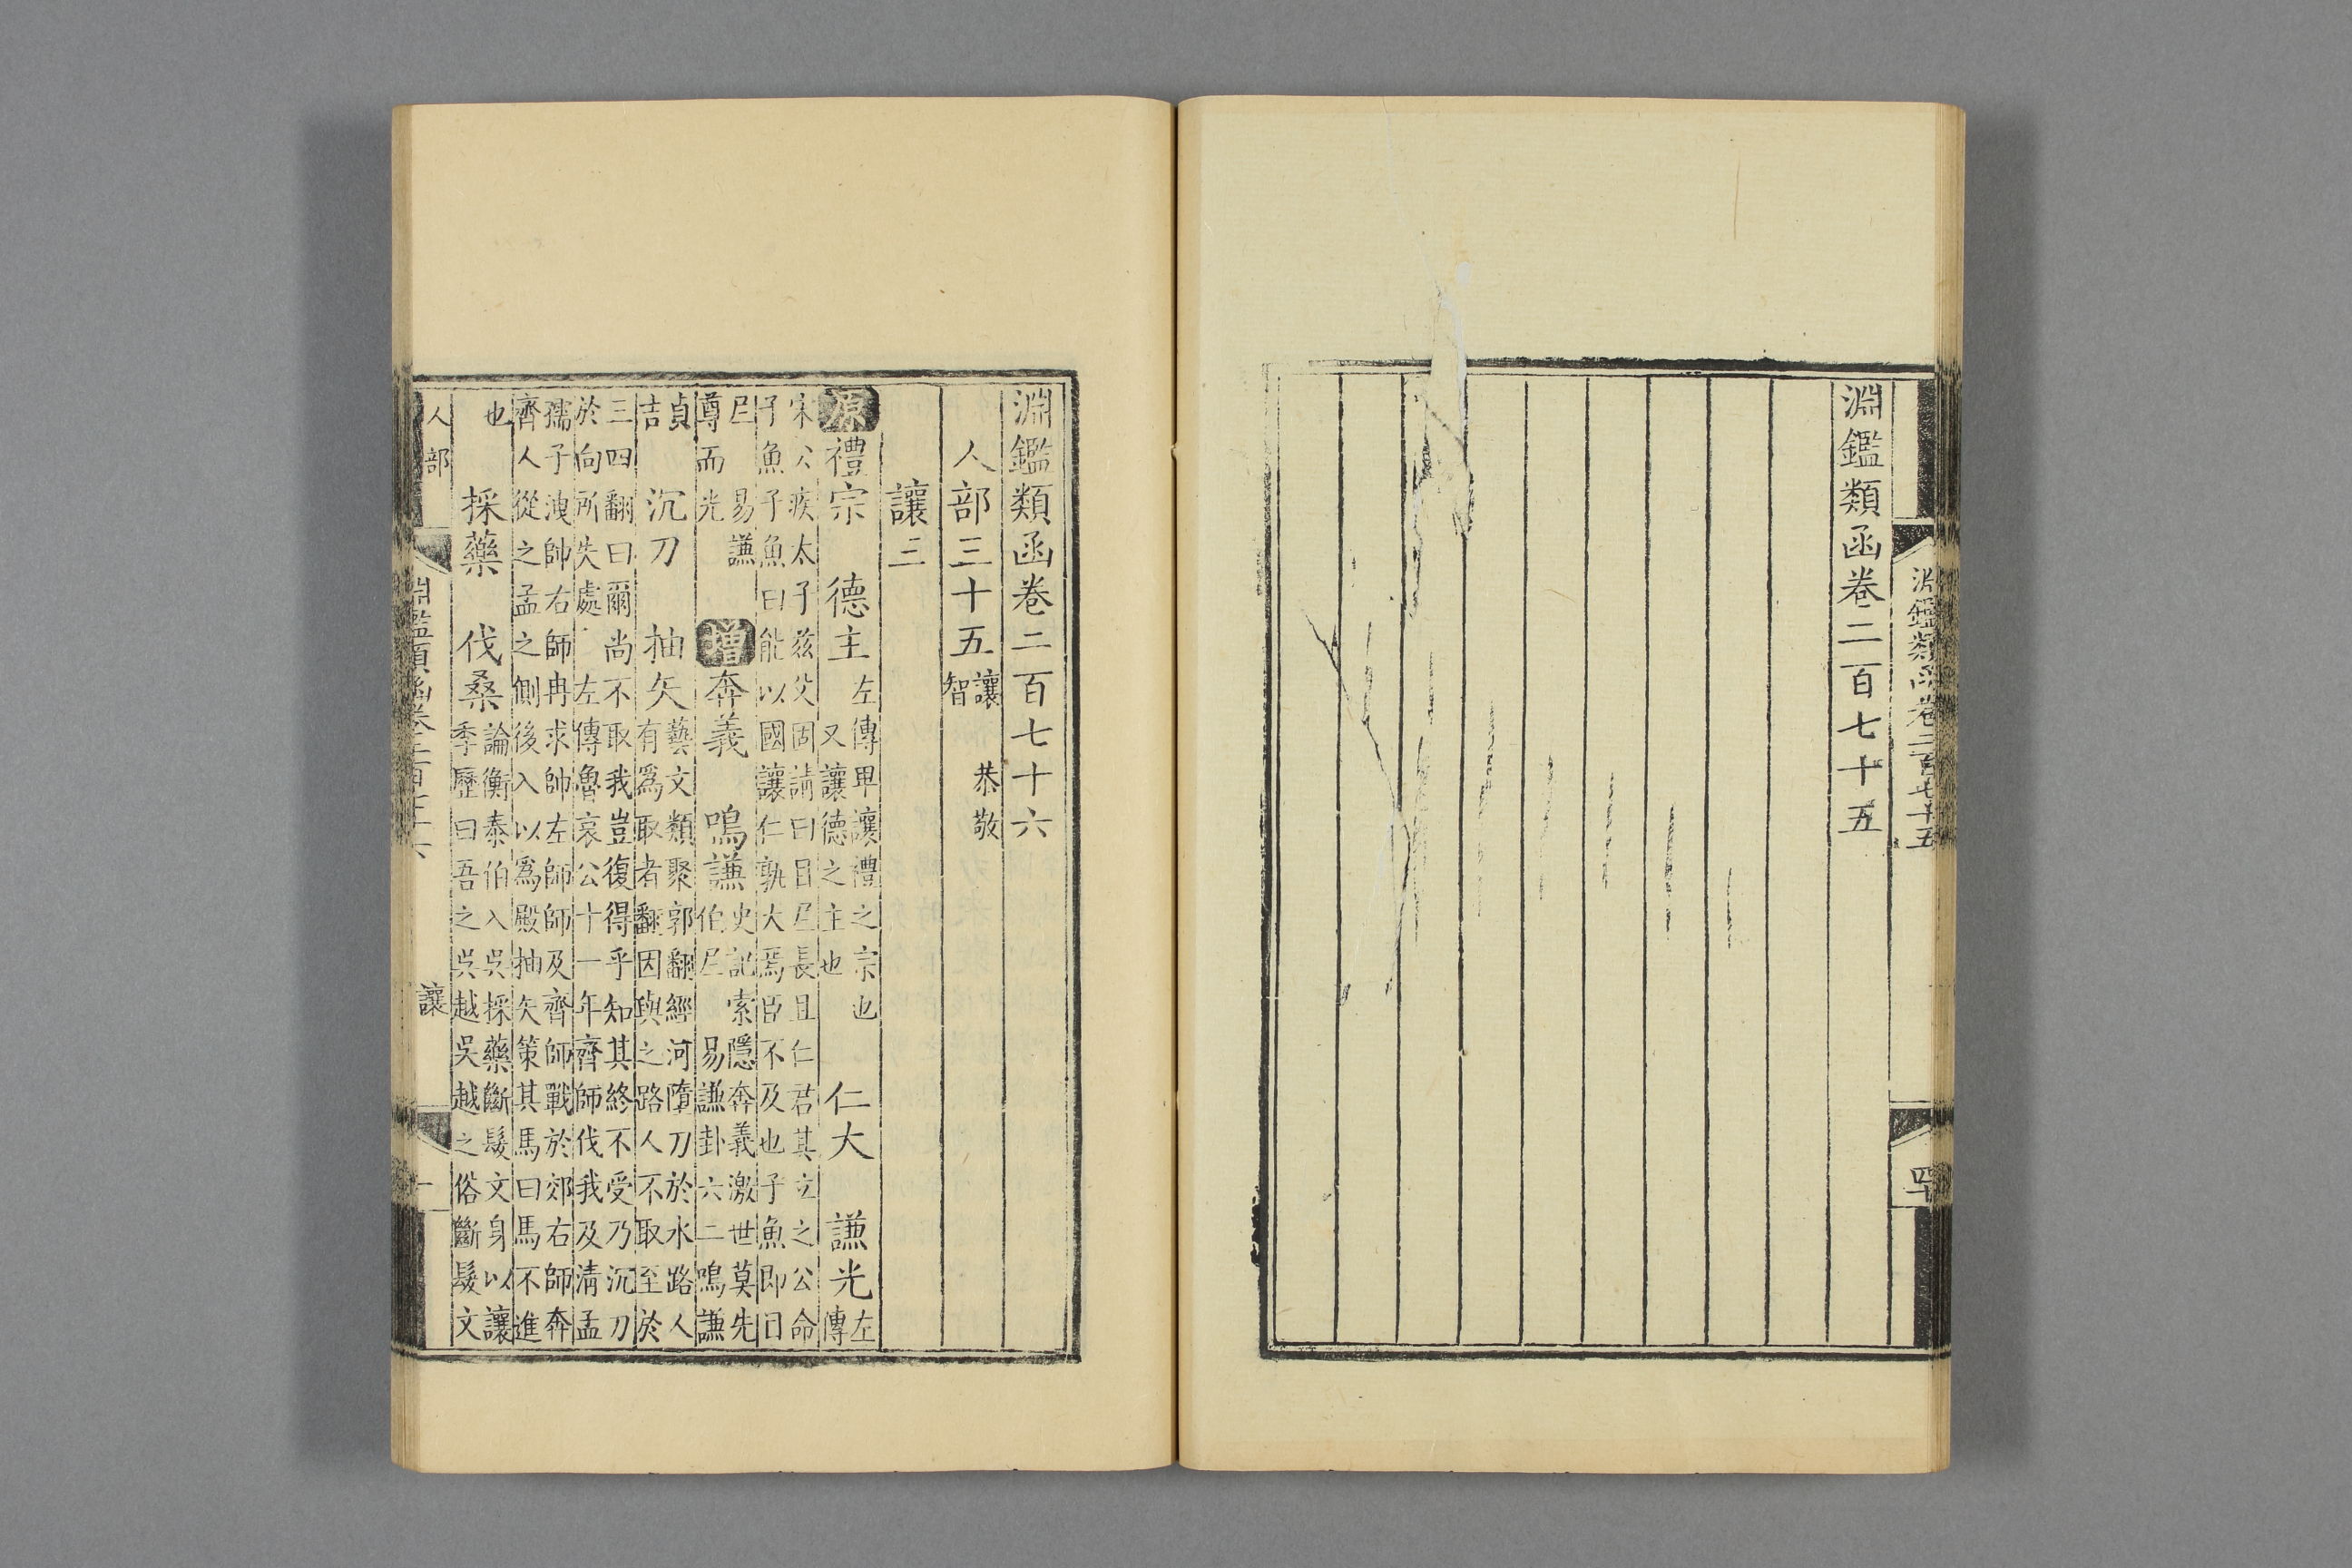 淵鑑類函卷二百七十五
四十
淵鑑類函卷二百七十五
淵鑑類函卷二百七十六
人部三十五
讓 恭敬
智
讓三
原禮宗 德主
左傳卑讓禮之宗也
又讓德之主也
仁大 謙光
左
傳
宋公疾太子茲父固請曰目𡰥長且仁君其立之公命
子魚子魚曰能以國讓仁孰大焉臣不及也子魚即目
𡰥 易謙
尊而光
增奔義 鳴謙
史記索隱奔義激世莫先
伯𡰥 易謙卦六二鳴謙
貞
吉
沉刀 抽矢
藝文類聚郭翻經河墮刀於水路人
有爲取者翻因與之路人不取至於
三四翻曰爾尚不取我豈復得乎知其終不受乃沉刀
於向所失處 左傳魯哀公十一年齊師伐我及清孟
孺子洩帥右師冉求帥左師師及齊師戰於郊右師奔
齊人從之孟之側後入以爲殿抽矢策其馬曰馬不進
也
採藥 伐桑
論衡泰伯入吳採藥斷髮文身以讓
季歷曰吾之吳越吳越之俗斷髮文
人部
淵鑑類函卷二百七十六
讓
一